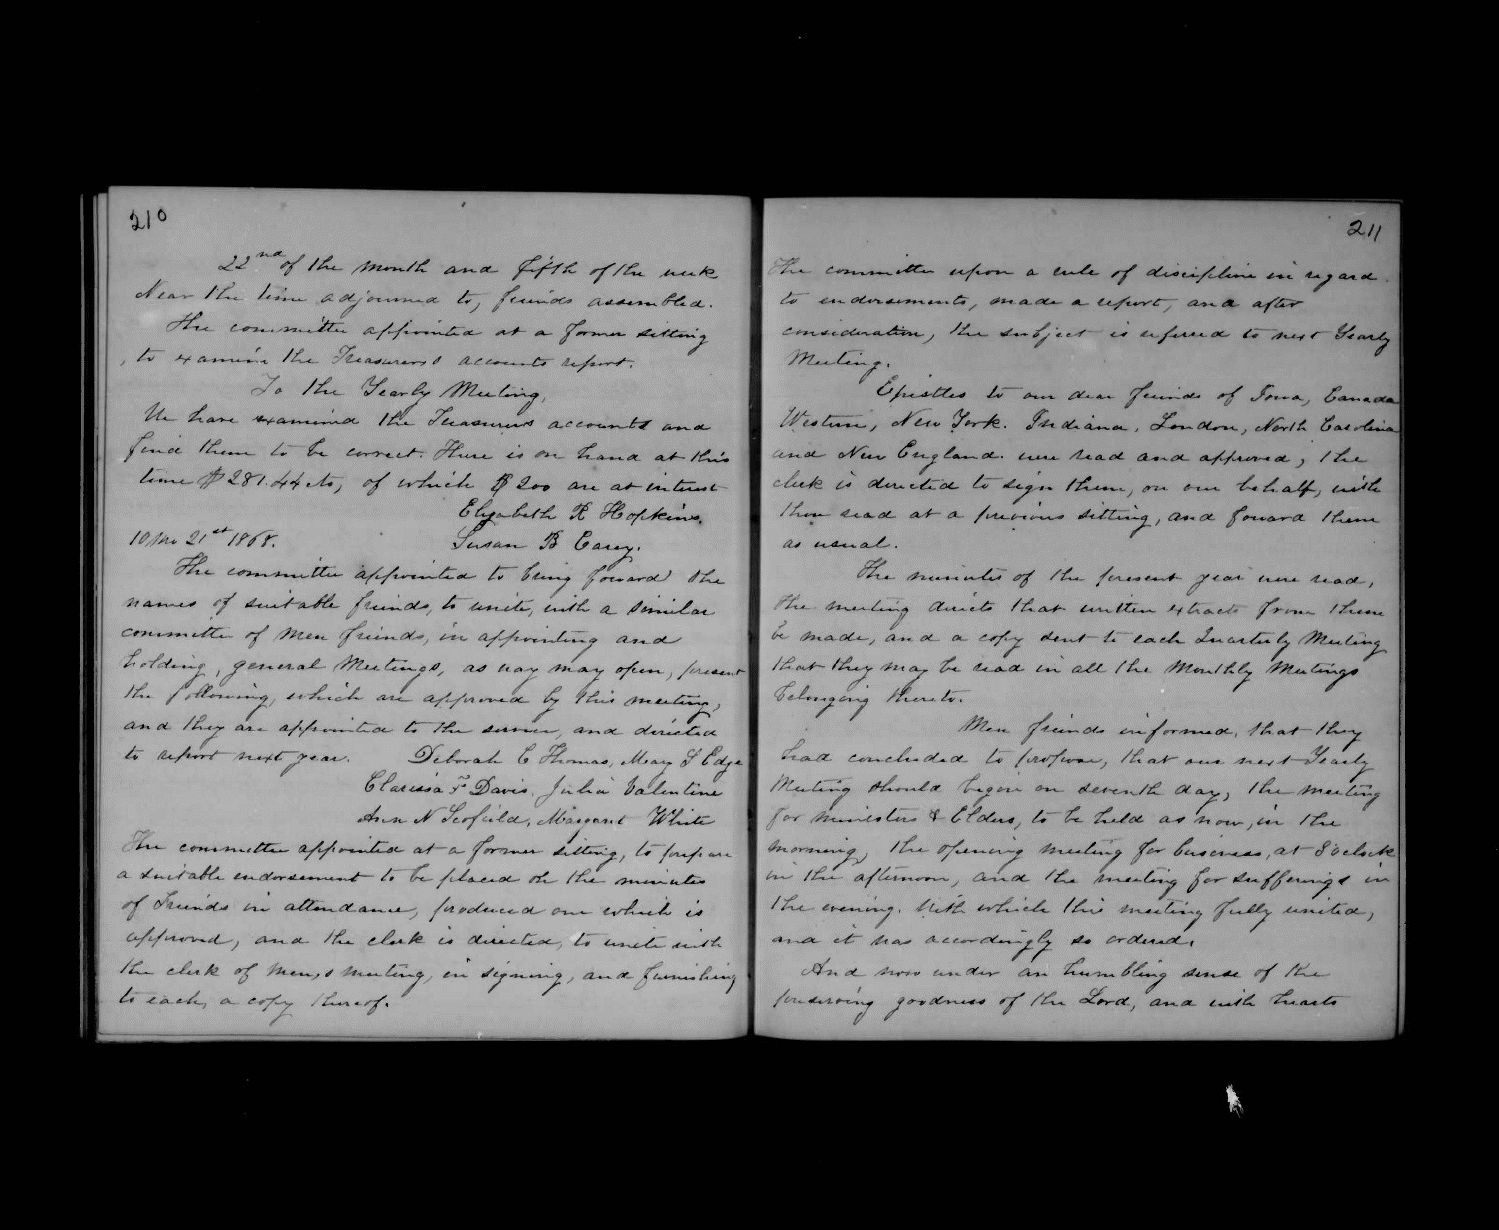 210
22nd of the month and fifth of the week
Near the time adjourned to, friends assembled.
The committee appointed at a former sitting
, to examine the Treasurers accounts report.
To the Yearly Meeting,
We have examined the Treasurers accounts and
find them to be correct. There is on hand at this
time $281.44 cts, of which $200 are at interest
Elizabeth R Hopkins.
10 mo 21st 1868. Susan B Carey.
The committee appointed to bring forward the
names of suitable friends, to unite, with a similar
committee of Men friends, in appointing and
holding, general Meetings, as way may open, present
the following, which are approved by this meeting,
and they are appointed to the service, and directed
to report next year. Deborah C Thomas, Mary S Edge
Clarissa F Davis. Julia Valentine
Ann N Scofield, Margaret White
The committee appointed at a former sitting, to prepare
a suitable endorsement to be placed on the minutes
of Friends in attendance, produced one which is
approved, and the clerk is directed, to unite with
the clerk of men,s meeting, in signing, and furnishing
to each, a copy thereof.
211
The committee upon a rule of discipline in regard
to endorsements, made a report, and after
consideration, the subject is referred to next Yearly
Meeting.
Epistles to our dear friends of Iowa, Canada
Western, New York. Indiana, London, North Carolina
and New England. were read and approved; the
clerk is directed to sign them, on our behalf, with
those read at a previous sitting, and foward them
as usual.
The minutes of the present year were read,
the meeting directs that written extracts from them
be made, and a copy sent to each Quarterly Meeting
that they may be read in all the Monthly Meetings
belonging thereto.
Men friends informed, that they
had concluded to propose, that our next Yearly
Meeting should begin on seventh day, the meeting
for ministers & Elders, to be held as now, in the
morning, the opening meeting for business, at 3 oclock
in the afternoon, and the meeting for sufferings in
the evening. With which this meeting fully united,
and it was accordingly so ordered.
And now under an humbling sense of the
preserving goodness of the Lord, and with hearts